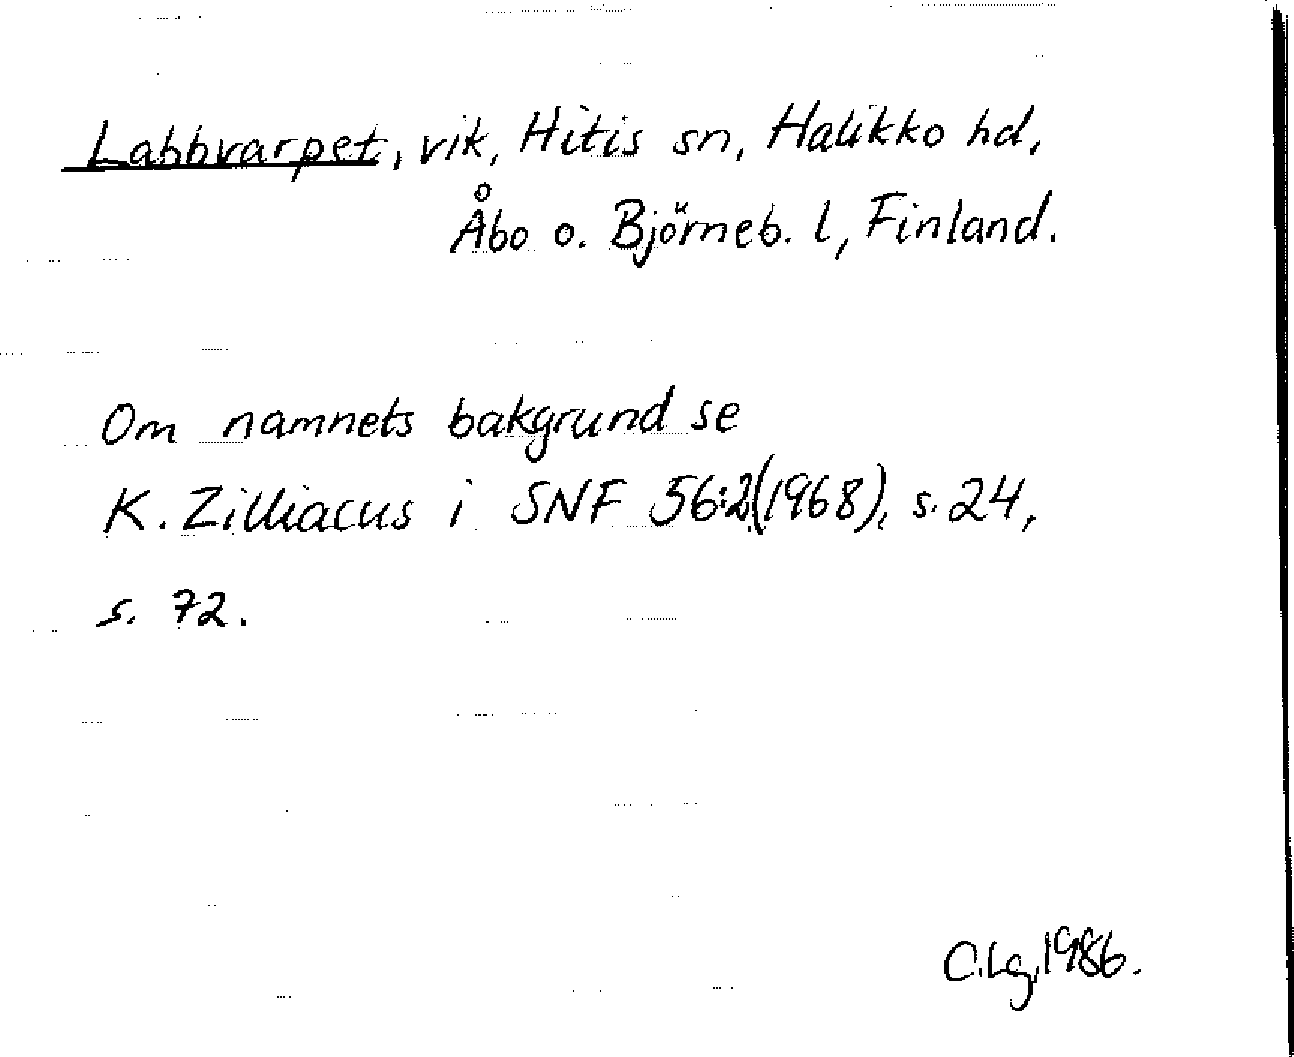 Labbvarpet, vik, Hitis sn, Halikko hd,
Åbo o. Björneb. l, Finland.
Om namnets bakgrund se
K. Zilliacus i SNF 56:2(1968), s. 24,
s. 72.
C.Lg.1986.